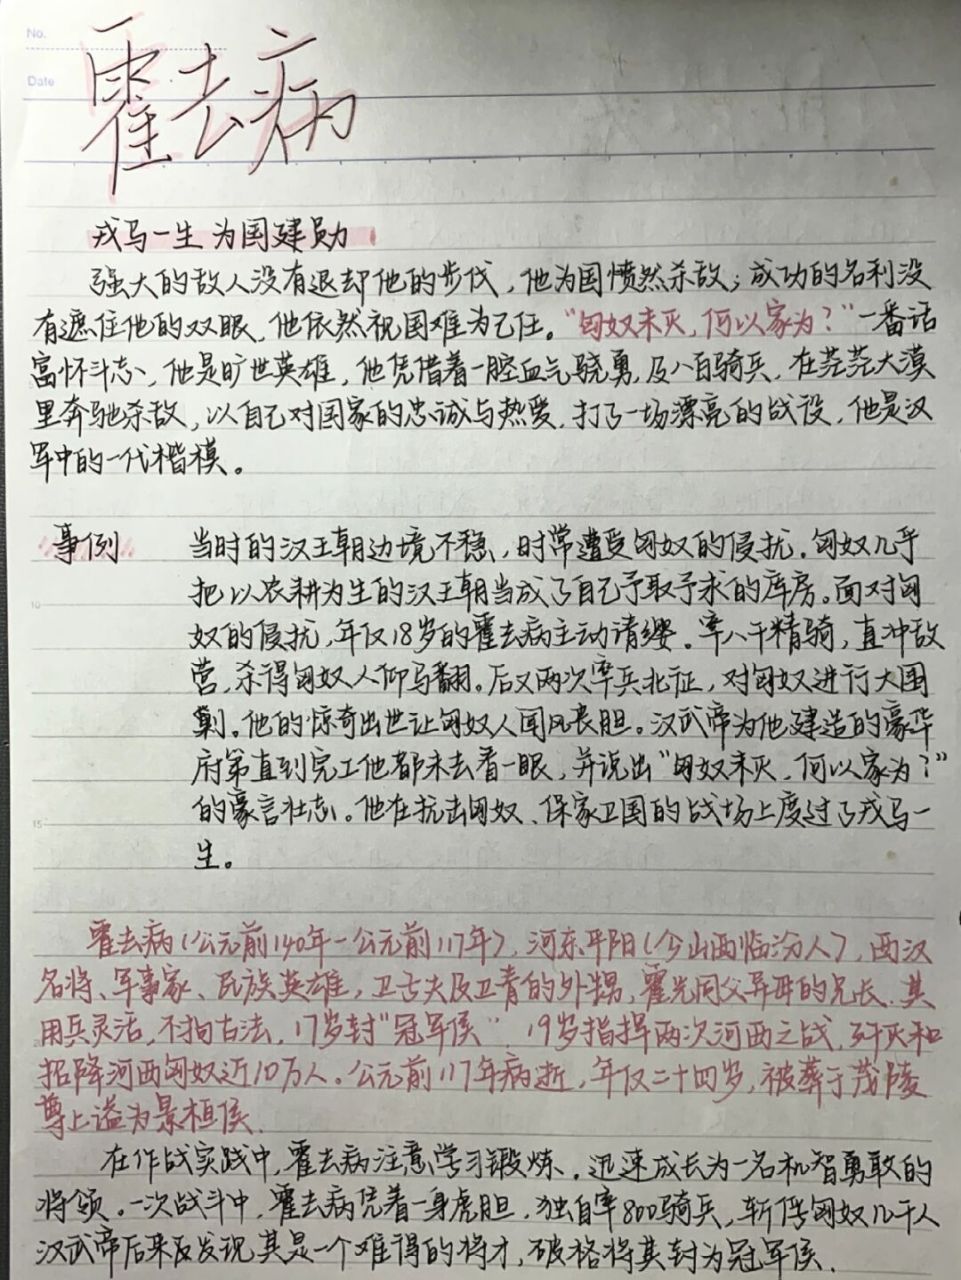 No.
Date
霍去病
戎马一生 为国建勋
强大的敌人没有退却他的步伐，他为国愤然杀敌；成功的名利没
有遮住他的双眼，他依然视国难为己任。“匈奴未灭，何以家为？”一番话
富怀斗志，他是旷世英雄，他凭借着一腔血气骁勇，及八百骑兵，在茫茫大漠
里奔驰杀敌，以自己对国家的忠诚与热爱，打了一场漂亮的战役，他是汉
军中的一代楷模。
事例 当时的汉王朝边境不稳，时常遭受匈奴的侵扰。匈奴几乎
把以农耕为生的汉王朝当成了自己予取予求的库房。面对匈
10
奴的侵扰，年仅18岁的霍去病主动请缨。率八千精骑，直冲敌
营，杀得匈奴人仰马翻。后又两次率兵北征，对匈奴进行大围
剿。他的惊奇出世让匈奴人闻风丧胆。汉武帝为他建造的豪华
府第直到完工他都未去看一眼，并说出“匈奴未灭，何以家为？”
的豪言壮志。他在抗击匈奴、保家卫国的战场上度过了戎马一
15
生。
霍去病（公元前140年—公元前117年），河东平阳（今山西临汾人），西汉
名将、军事家、民族英雄，卫子夫及卫青的外甥，霍光同父异母的兄长。其
用兵灵活，不拘古法，17岁封“冠军侯”，19岁指挥两次河西之战，歼灭和
招降河西匈奴近10万人。公元前117年病逝，年仅二十四岁，被葬于茂陵
尊上谥为景桓侯。
在作战实践中，霍去病注意学习锻炼，迅速成长为一名机智勇敢的
将领。一次战斗中，霍去病凭着一身虎胆，独自率800骑兵，斩俘匈奴几千人
汉武帝后来及发现其是一个难得的将才，破格将其封为冠军侯。